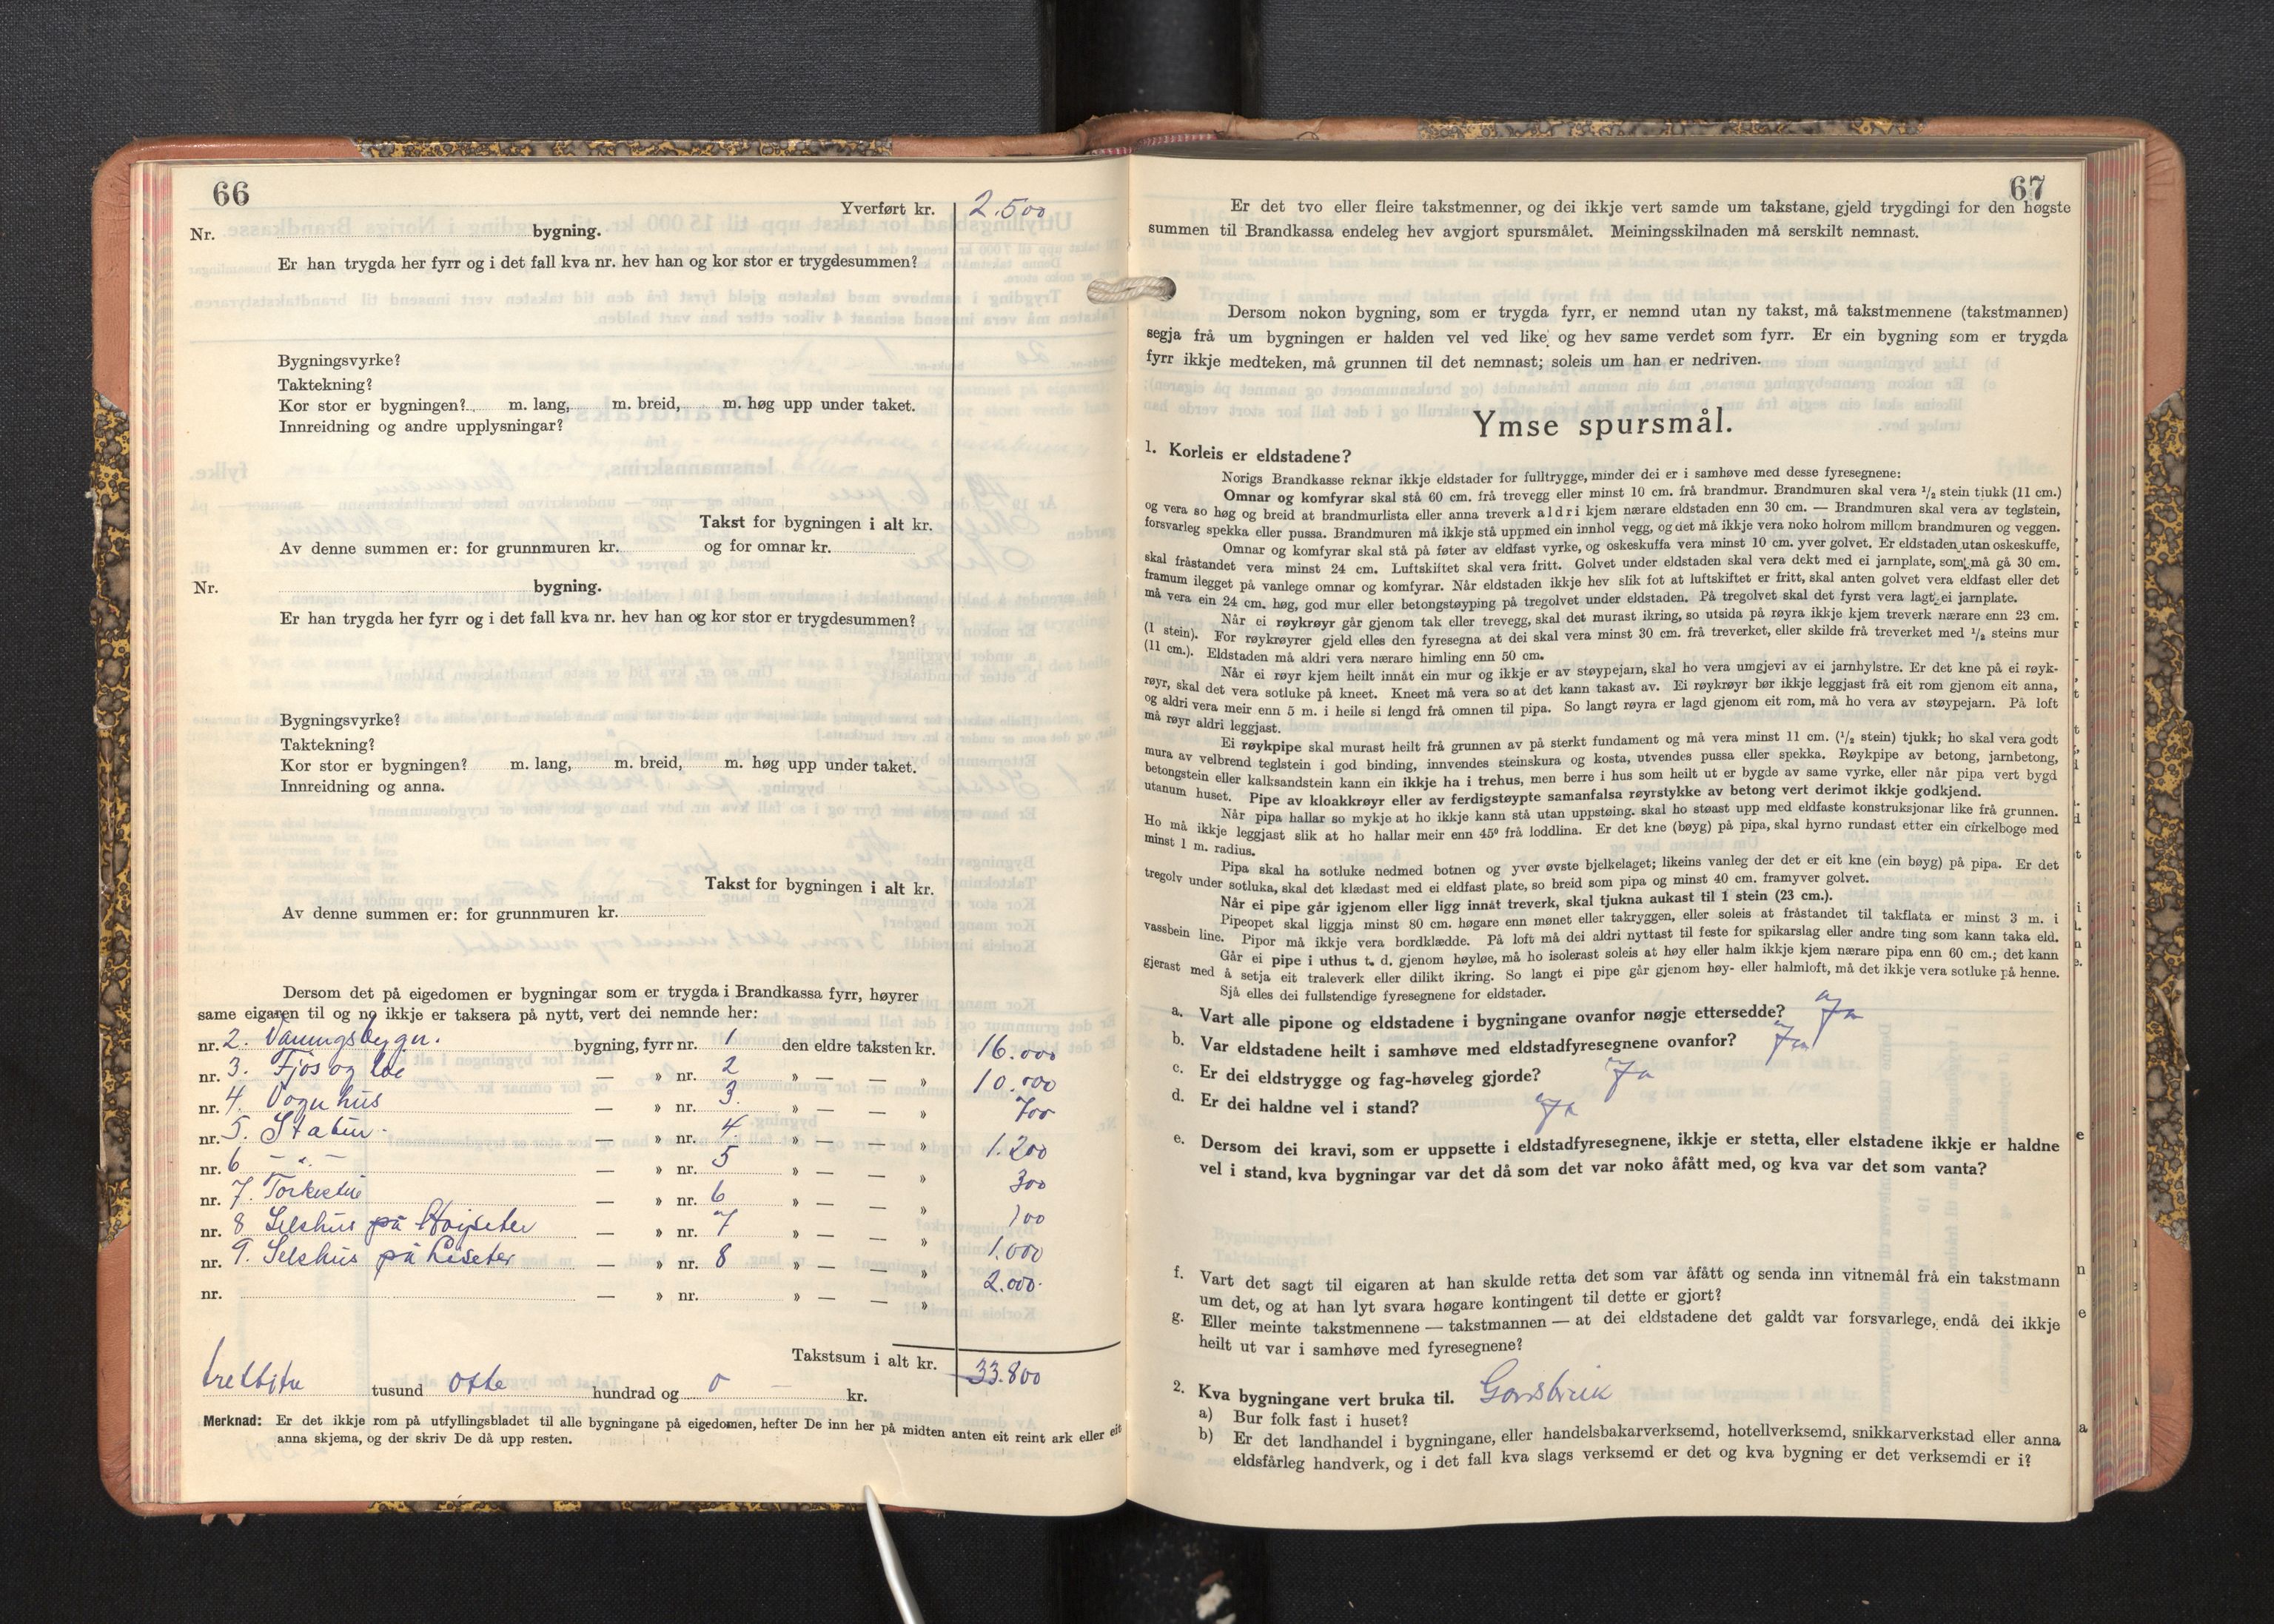 66
Yverført kr. 2.500
Nr. bygning.
Er han trygda her fyrr og i det fall kva nr. hev han og kor stor er trygdesummen?
Bygningsvyrke?
Taktekning?
Kor stor er bygningen? m. lang, m. breid, m. høg upp under taket.
Innreidning og andre upplysningar?
Takst for bygningen i alt kr.
Av denne summen er: for grunnmuren kr. og for omnar kr.
Nr. bygning.
Er han trygda her fyrr og i det fall kva nr. hev han og kor stor er trygdesummen?
Bygningsvyrke?
Taktekning?
Kor stor er bygningen? m. lang, m. breid, m. høg upp under taket.
Innreidning og anna.
Takst for bygningen i alt kr.
Av denne summen er: for grunnmuren kr.
Dersom det på eigedomen er bygningar som er trygda i Brandkassa fyrr, høyrer
same eigaren til og no ikkje er taksera på nytt, vert dei nemnde her:
nr. 2. Vaningsbygn. bygning, fyrr nr. 1 den eldre taksten kr. 16.000
nr. 3. Fjøs og løe — » nr. 2 » — — » 10.000
nr. 4. Vognhus — » nr. 3. » — — » 700
nr. 5. Stabur — » nr. 4 » — — » 1.200
nr. 6 — " — — » nr. 5 » — — » 300
nr. 7. — » nr. 6 » — — » 100
nr. 8 Selshus på — » nr. 7 » — — » 1.000
nr. 9. Selshus på Liseter — » nr. 8 » — — » 2.000.
nr. — » nr. » — — »
Takstsum i alt kr. 33.800
trettitre tusund otte hundrad og 0 kr.
Merknad: Er det ikkje rom på utfyllingsbladet til alle bygningane på eigedomen, hefter De inn her på midten anten eit reint ark eller eit
anna skjema, og der skriv De då upp resten.
67
Er det tvo eller fleire takstmenner, og dei ikkje vert samde um takstane, gjeld trygdingi for den høgste
summen til Brandkassa endeleg hev avgjort spursmålet. Meiningsskilnaden må serskilt nemnast.
Dersom nokon bygning, som er trygda fyrr, er nemnd utan ny takst, må takstmennene (takstmannen)
segja frå um bygningen er halden vel ved like og hev same verdet som fyrr. Er ein bygning som er trygda
fyrr ikkje medteken, må grunnen til det nemnast; soleis um han er nedriven.
Ymse spursmål.
1. Korleis er eldstadene?
Norigs Brandkasse reknar ikkje eldstader for fulltrygge, minder dei er i samhøve med desse fyresegnene:
Omnar og komfyrar skal stå 60 cm. frå trevegg eller minst 10 cm. frå brandmur. Brandmuren skal vera 1/2 stein tjukk (11 cm.)
og vera so høg og breid at brandmurlista eller anna treverk aldri kjem nærare eldstaden enn 30 cm. — Brandmuren skal vera av teglstein,
forsvarleg spekka eller pussa. Brandmuren må ikkje stå uppmed ein innhol vegg, og det må ikkje vera noko holrom millom brandmuren og veggen.
Omnar og komfyrar skal stå på føter av eldfast vyrke, og oskeskuffa vera minst 10 cm. yver golvet. Er eldstaden utan oskeskuffe,
skal fråstandet vera minst 24 cm. Luftskiftet skal vera fritt. Golvet under eldstaden skal vera dekt med ei jarnplate, som må gå 30 cm.
framum ilegget på vanlege omnar og komfyrar. Når eldstaden ikkje hev slik fot at luftskiftet er fritt, skal anten golvet vera eldfast eller det
må vera ein 24 cm. høg, god mur eller betongstøyping på tregolvet under eldstaden. På tregolvet skal det fyrst vera lagt ei jarnplate.
Når ei røykrøyr går gjenom tak eller trevegg, skal det murast ikring, so utsida på røyra ikkje kjem treverk nærare enn 23 cm.
(1 stein). For røykrøyrer gjeld elles den fyresegna at dei skal vera minst 30 cm. frå treverket, eller skilde frå treverket med 1/2 steins mur
(11 cm.). Eldstaden må aldri vera nærare himling enn 50 cm.
Når ei røyr kjem heilt innåt ein mur og ikkje er av støypejarn, skal ho vera umgjevi av ei jarnhylstre. Er det kne på ei røyk-
røyr, skal det vera sotluke på kneet. Kneet må vera so at det kann takast av. Ei røykrøyr bør ikkje leggjast frå eit rom gjenom eit anna,
og aldri vera meir enn 5 m. i heile si lengd frå omnen til pipa. So langt røyra er lagd gjenom eit rom, må ho vera av støypejarn. På loft
må røyr aldri leggjast.
Ei røykpipe skal murast heilt frå grunnen av på sterkt fundament og må vera minst 11 cm. (1/2 stein) tjukk; ho skal vera godt
mura av velbrend teglstein i god binding, innvendes steinskura og kosta, utvendes pussa eller spekka. Røykpipe av betong, jarnbetong,
betongstein eller kalksandstein kann ein ikkje ha i trehus, men berre i hus som heilt ut er bygde av same vyrke, eller når pipa vert bygd
utanum huset. Pipe av kloakkrøyr eller av ferdigstøypte samanfalsa røyrstykke av betong vert derimot ikkje godkjend.
Når pipa hallar so mykje at ho ikkje kann stå utan uppstøing, skal ho støast upp med eldfaste konstruksjonar like frå grunnen.
Ho må ikkje leggjast slik at ho hallar meir enn 45° frå loddlina. Er det kne (bøyg) på pipa, skal hyrno rundast etter ein cirkelboge med
minst 1 m. radius.
Pipa skal ha sotluke nedmed botnen og yver øvste bjelkelaget; likeins vanleg der det er eit kne (ein bøyg) på pipa. Er det
tregolv under sotluka, skal det klædast med ei eldfast plate, so breid som pipa og minst 40 cm. framyver golvet.
Når ei pipe går igjenom eller ligg innåt treverk, skal tjukna aukast til 1 stein (23 cm.).
Pipeopet skal liggja minst 80 cm. høgare enn mønet eller takryggen, eller soleis at fråstandet til takflata er minst 3 m. i
vassbein line. Pipor må ikkje vera bordklædde. På loft må dei aldri nyttast til feste for spikarslag eller andre ting som kann taka eld.
Går ei pipe i uthus t. d. gjenom høyløe, må ho isolerast soleis at høy eller halm ikkje kjem nærare pipa enn 60 cm.; det kann
gjerast med å setja eit traleverk eller dilikt ikring. So langt ei pipe går gjenom høy- eller halmloft, må det ikkje vera sotluke på henne.
Sjå elles dei fullstendige fyresegnene for eldstader.
a. Vart alle pipone og eldstadene i bygningane ovanfor nøgje ettersedde? Ja
b. Var eldstadene heilt i samhøve med eldstadfyresegnene ovanfor? Ja
c. Er dei eldstrygge og fag-høveleg gjorde? Ja
d. Er dei haldne vel i stand? Ja
e. Dersom dei kravi, som er uppsette i eldstadfyresegnene, ikkje er stetta, eller elstadene ikkje er haldne
vel i stand, kva bygningar var det då som det var noko åfått med, og kva var det som vanta?
f. Vart det sagt til eigaren at han skulde retta det som var åfått og senda inn vitnemål frå ein takstmann
um det, og at han lyt svara høgare kontingent til dette er gjort?
g. Eller meinte takstmennene — takstmannen — at dei eldstadene det galdt var forsvarlege, endå dei ikkje
heilt ut var i samhøve med fyresegnene?
2. Kva bygningane vert bruka til. Gardsbruk
a) Bur folk fast i huset?
b) Er det landhandel i bygningane, eller handelsbakarverksemd, hotellverksemd, snikkarverkstad eller anna
eldsfårleg handverk, og i det fall kva slags verksemd er det og kva bygning er det verksemdi er i?